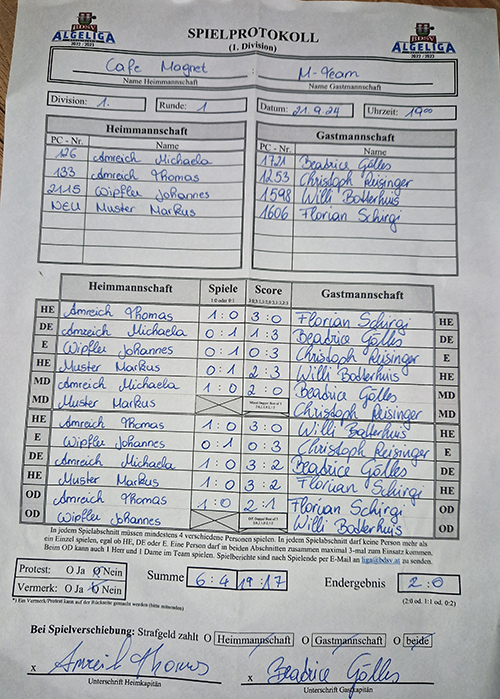 BDSV
ALGELIGA
2022 / 2023
SPIELPROTOKOLL
(1. Division)
BDSV
ALGELIGA
2022 / 2023
Cafe Magnet : M-Team
Name Heimmannschaft Name Gastmannschaft
Division: 1. Runde: 1 Datum: 21.9.24 Uhrzeit: 19 00
Heimmannschaft Gastmannschaft
PC - Nr. Name PC - Nr. Name
126 Amreich Michaela 1721 Beatrice Gölles
133 Amreich Thomas 1253 Christoph Reisinger
2115 Wipfler Johannes 1598 Willi Botterhuis
NEU Muster Markus 1606 Florian Schirgi
Heimmannschaft Spiele Score Gastmannschaft
1:0 oder 0:1
HE Amreich Thomas 1:0 3:0 Florian Schirgi HE
DE Amreich Michaela 0:1 1:3 Beatrice Gölles DE
E Wipfler Johannes 0:1 0:3 Christoph Reisinger E
HE Muster Markus 0:1 2:3 Willi Botterhuis HE
MD Amreich Michaela 1:0 2:0 Beatrice Gölles MD
MD Muster Markus Christoph Reisinger MD
HE Amreich Thomas 1:0 3:0 Willi Botterhuis HE
E Wipfler Johannes 0:1 0:3 Christoph Reisinger E
DE Amreich Michaela 1:0 3:2 Beatrice Gölles DE
HE Muster Markus 1:0 3:2 Florian Schirgi HE
OD Amreich Thomas 1:0 2:1 Florian Schirgi OD
OD Wipfler Johannes Willi Botterhuis OD
In jedem Spielabschnitt müssen mindestens 4 verschiedene Personen spielen. In jedem Spielabschnitt darf keine Person mehr als
ein Einzel spielen, egal ob HE, DE oder E. Eine Person darf in beiden Abschnitten zusammen maximal 3-mal zum Einsatz kommen.
Beim OD kann auch 1 Herr und 1 Dame im Team spielen. Spielberichte sind nach Spielende per E-Mail an liga@bdsv.at zu senden.
Protest: O Ja O Nein
Vermerk: O Ja O Nein
Summe 6:4 19:17 Endergebnis 2:0
*) Ein Vermerk/Protest kann auf der Rückseite gemacht werden (bitte ankreuzen)
(2:0 od. 1:1 od. 0:2)
Bei Spielverschiebung: Strafgeld zahlt O Heimmannschaft O Gastmannschaft O beide
x Amreich Thomas x Beatrice Gölles
Unterschrift Heimkapitän Unterschrift Gastkapitän